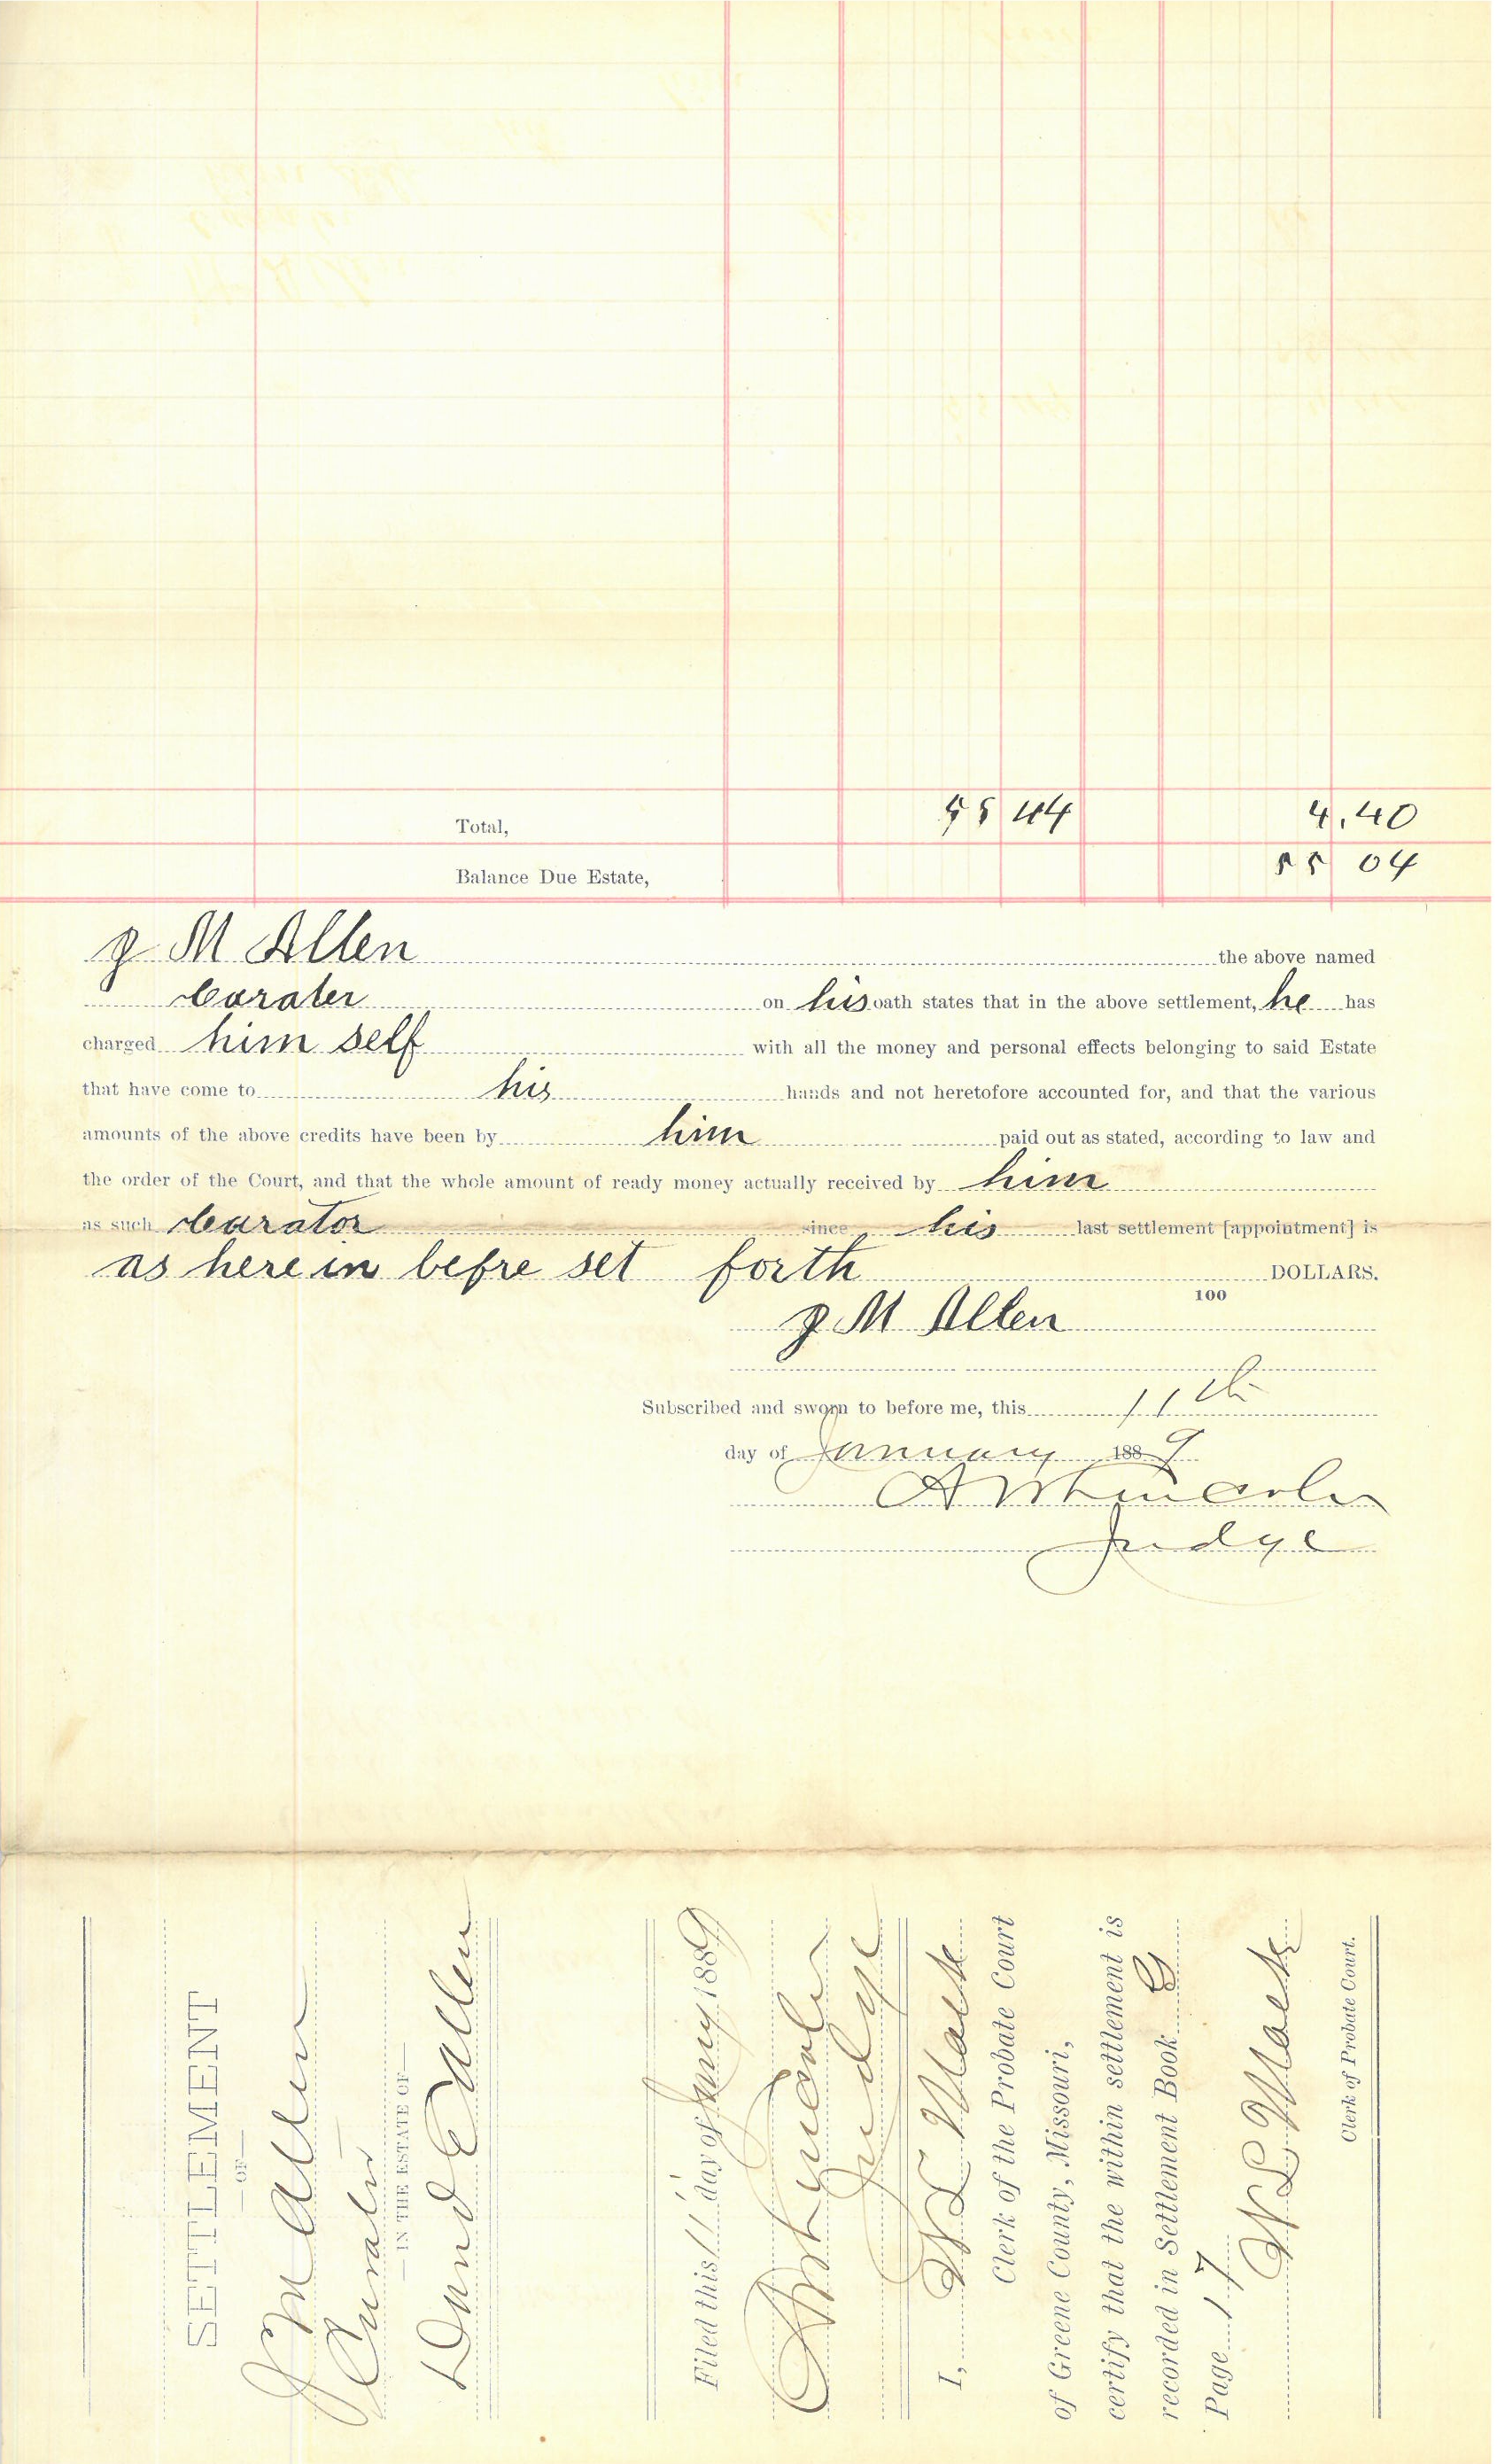 Total, 44 4.40
Balance Due Estate, 55 04
J M Allen the above named
Curater on his oath states that in the above settlement, he has
charged him self with all the money and personal effects belonging to said Estate
that have come to his hands and not heretofore accounted for, and that the various
amounts of the above credits have been by him paid out as stated, according to law and
the order of the Court, and that the whole amount of ready money actually received by him
as such Curator since his last settlement [appointment] is
as here in befre set forth DOLLARS.
100
J M Allen
Subscribed and sworn to before me, this 11th
day of January 1889
A W Lincoln
Judge
SETTLEMENT
—OF—
J M Allen
Curator
—IN THE ESTATE OF—
David C Allen
Filed this 11' day of Jany 1889
A W Lincoln
Judge
I, W L Mack
Clerk of the Probate Court
of Greene County, Missouri,
certify that the within settlement is
recorded in Settlement Book G
Page 17
W L Mack
Clerk of Probate Court.